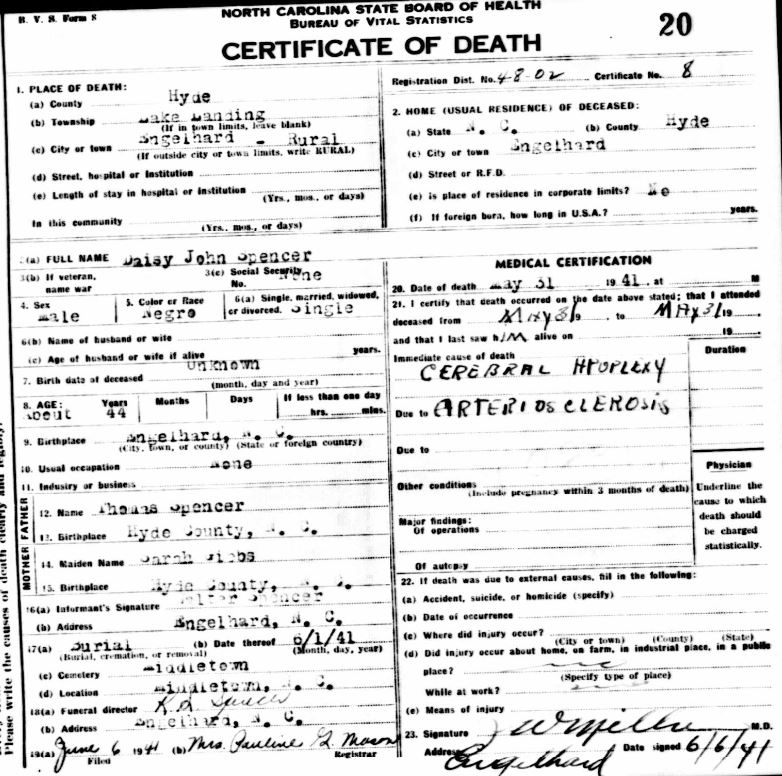 R. V. S. Form 8
NORTH CAROLINA STATE BOARD OF HEALTH
BUREAU OF VITAL STATISTICS
CERTIFICATE OF DEATH
20
Registration Dist. No. 48-02 Certificate No. 8
1. PLACE OF DEATH:
(a) County Hyde
(b) Township Lake Landing
(If in town limits, leave blank)
(c) City or town Engelhard - Rural
(If outside city or town limits, write RURAL)
(d) Street, hospital or Institution
(e) Length of stay in hospital or Institution
(Yrs., mos., or days)
In this community
(Yrs., mos., or days)
2. HOME (USUAL RESIDENCE) OF DECEASED:
(a) State N. C. (b) County Hyde
(c) City or town Engelhard
(d) Street or R.F.D.
(e) is place of residence in corporate limits? No
(f) If foreign born, how long in U.S.A.? years.
3(a) FULL NAME Daisy John Spencer
3(b) If veteran, name war
3(c) Social Security No. None
4. Sex Male
5. Color or Race Negro
6(a) Single, married, widowed, or divorced. Single
6(b) Name of husband or wife
(c) Age of husband or wife if alive years.
7. Birth date of deceased Unknown
(month, day and year)
8. AGE: About Years 44 Months Days If less than one day
hrs. mins.
9. Birthplace Engelhard, N. C.
(City, town, or county) (State or foreign country)
10. Usual occupation None
11. Industry or business
FATHER
12. Name Thomas Spencer
13. Birthplace Hyde County, N. C.
MOTHER
14. Maiden Name Sarah Gibbs
15. Birthplace Hyde County, N. C.
16(a) Informant's Signature Walter Spencer
(b) Address Engelhard, N. C.
17(a) Burial (b) Date thereof 6/1/41
(Burial, cremation, or removal) (Month, day, year)
(c) Cemetery Middletown
(d) Location Middletown, N. C.
18(a) Funeral director
(b) Address Engelhard, N. C.
19(a) June 6 1941 (b) Mrs. Pauline G. Mason
Filed Registrar
MEDICAL CERTIFICATION
20. Date of death May 31 1941, at M
21. I certify that death occurred on the date above stated; that I attended
deceased from MAY 31 19 , to MAY 31 19
and that I last saw him alive on 19
Immediate cause of death
CEREBRAL APOPLEXY
Due to ARTERIOSCLEROSIS
Due to
Other conditions
(Include pregnancy within 3 months of death)
Major findings:
Of operations
Of autopsy
Duration
Physician
Underline the
cause to which
death should
be charged
statistically.
22. If death was due to external causes, fill in the following:
(a) Accident, suicide, or homicide (specify)
(b) Date of occurrence
(c) Where did injury occur?
(City or town) (County) (State)
(d) Did injury occur about home, on farm, in industrial place, in a public
place?
(Specify type of place)
While at work?
(e) Means of injury
23. Signature M.D.
Address Engelhard Date signed 6/6/41
Please write the causes of death clearly and legibly.